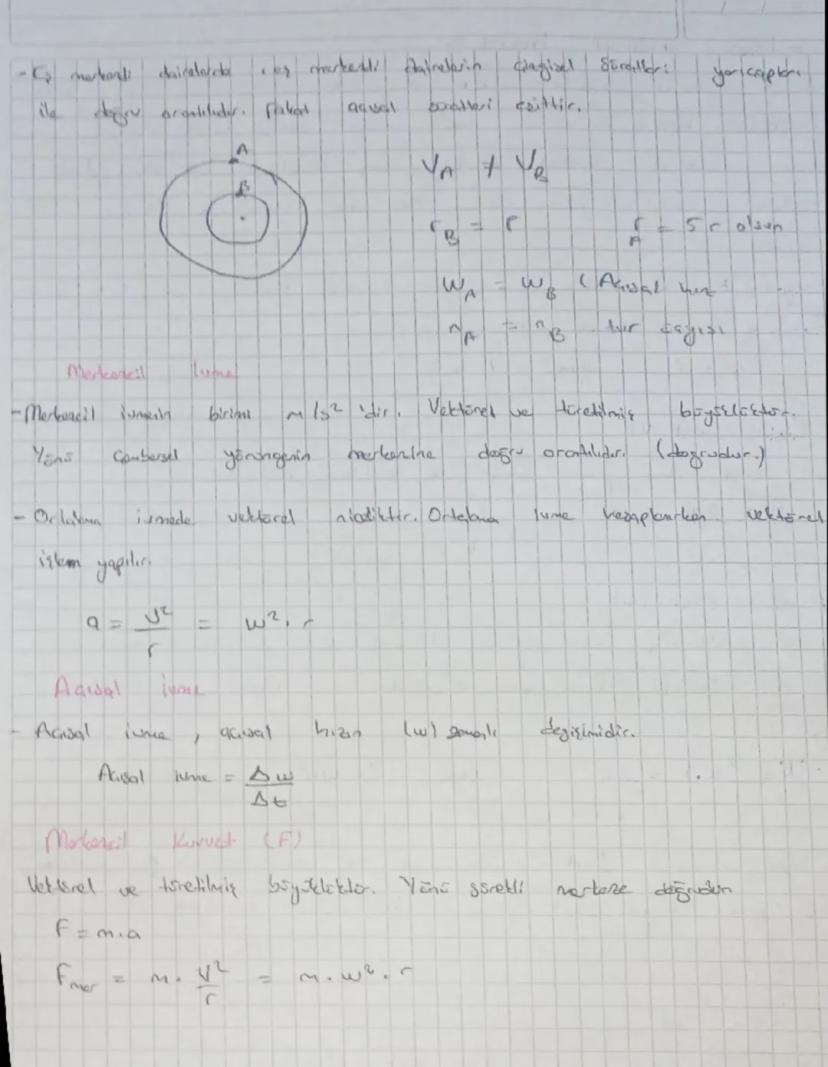 - Eş merkezli dairelerde eş merkezli dairelerin çizgisel süratleri yarıçapları
ile doğru orantılıdır. Fakat açısal süratleri eşittir.
A
B
V_A ≠ V_B
r_B = r r_A = 5r olsun
W_A = W_B (Açısal hız
n_A = n_B tur sayısı
Merkezcil ivme
- Merkezcil ivmenin birimi m/s² 'dir. Vektörel ve türetilmiş büyüklüktür.
Yönü çembersel yörüngenin merkezine doğru orantılıdır. (doğrudur.)
- Ortalama ivmede vektörel niceliktir. Ortalama ivme hesaplanırken vektörel
işlem yapılır.
a = V²/r = w².r
Açısal ivme
- Açısal ivme, açısal hızın (w) zamanla değişimidir.
Açısal ivme = Δw/Δt
Merkezcil Kuvvet (F)
Vektörel ve türetilmiş büyüklüktür. Yönü sürekli merkeze doğrudur
F = m.a
F_mer = m . V²/r = m . w² . r